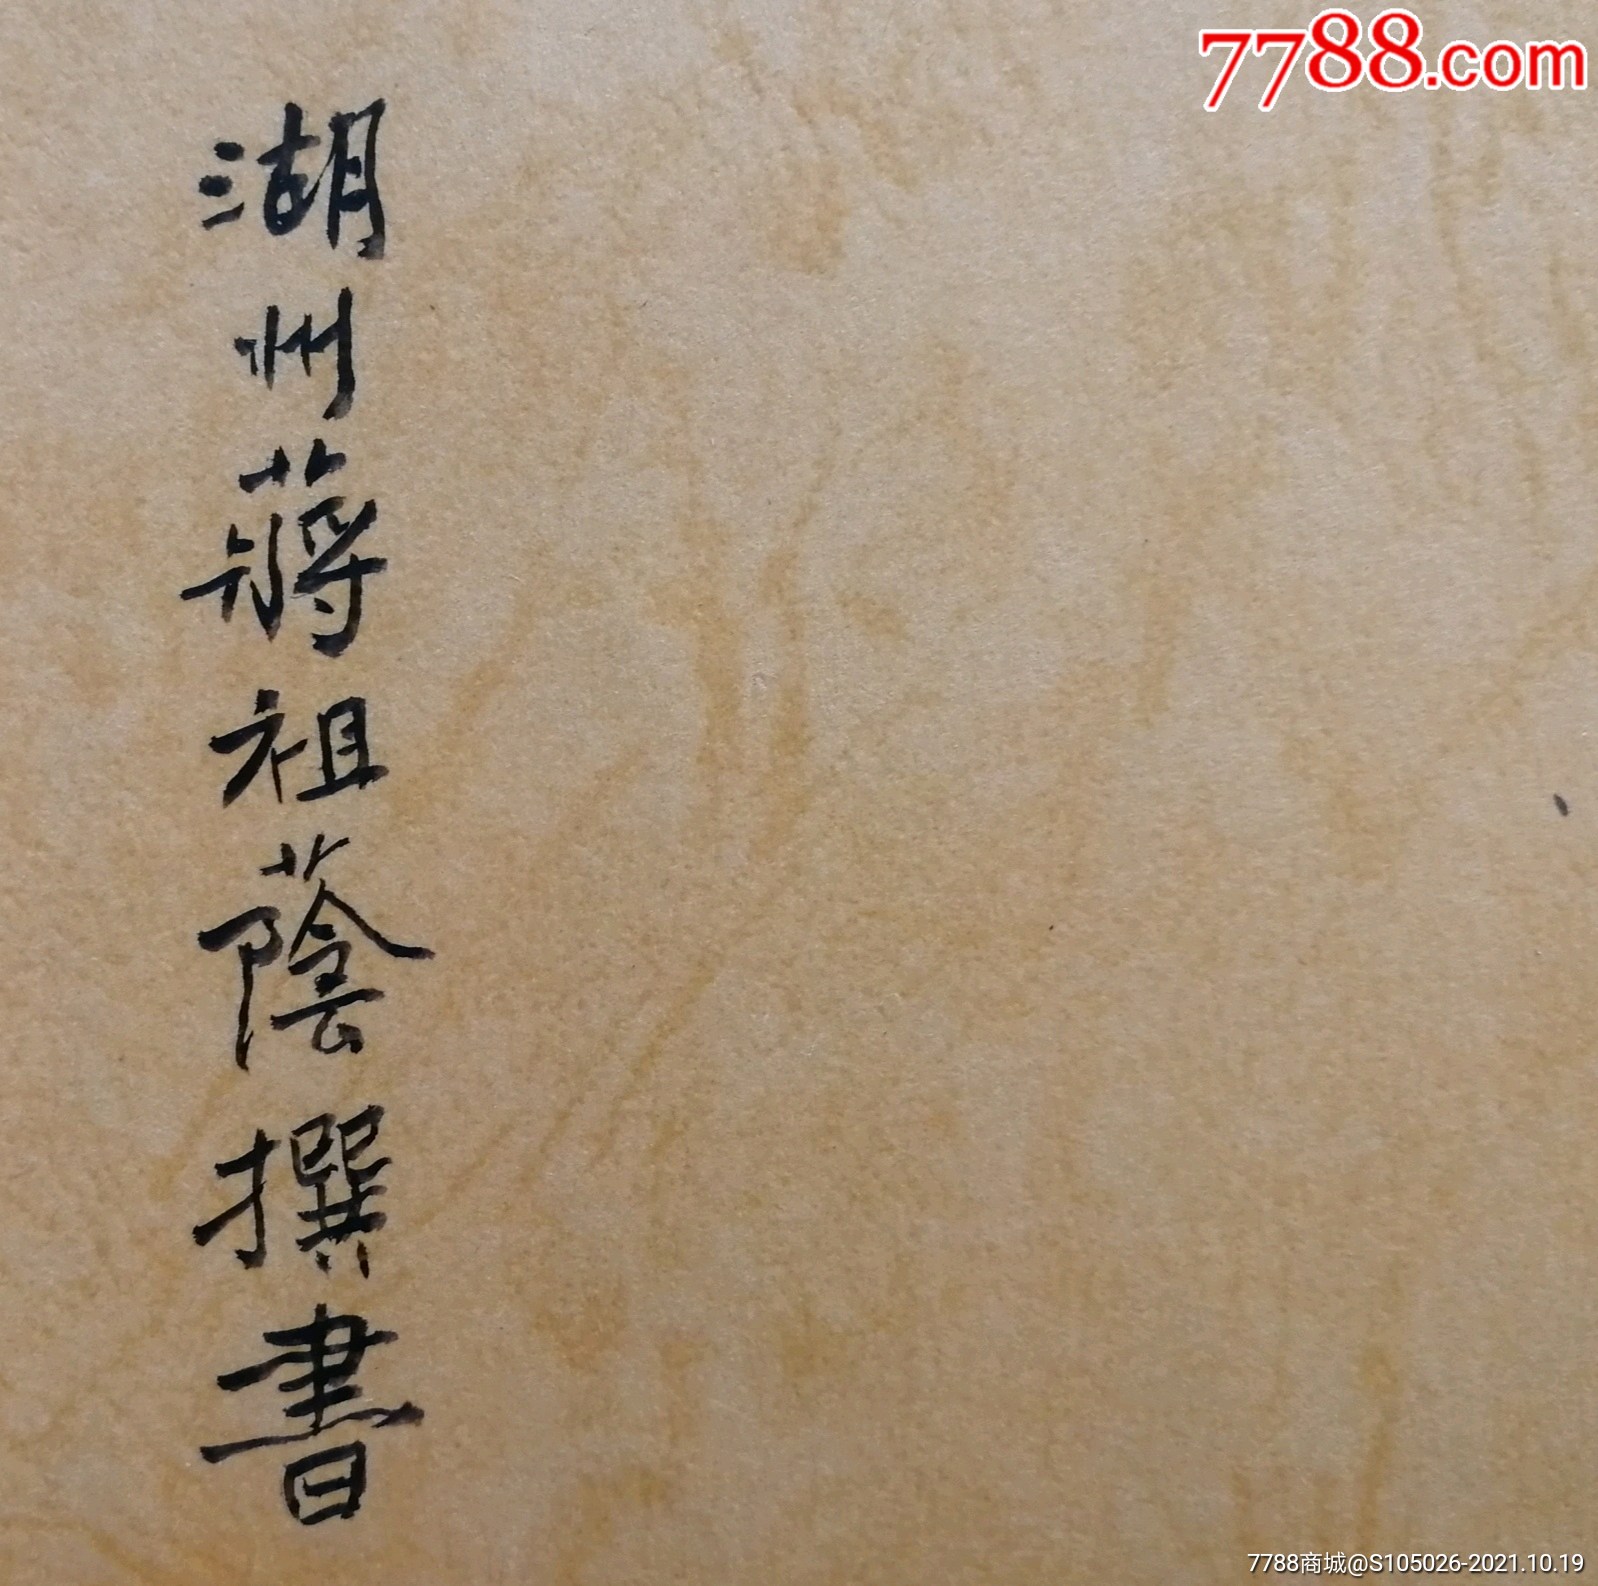 7788.com
湖州蔣祖蔭撰書
7788商城@S105026-2021.10.19